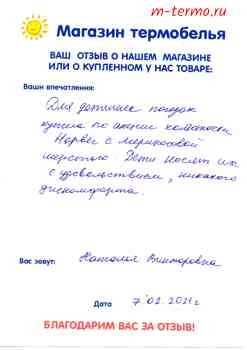 m-termo.ru
Магазин термобелья
ВАШ ОТЗЫВ О НАШЕМ МАГАЗИНЕ
ИЛИ О КУПЛЕННОМ У НАС ТОВАРЕ:
Ваши впечатления:
Для детишек
купила по акции комплекты
Норвег с мериносовой
шерстью. Дети носят их
с удовольствием, никакого
дискомфорта.
Вас зовут: Наталия Викторовна
Дата 7.02.2021 г
БЛАГОДАРИМ ВАС ЗА ОТЗЫВ!